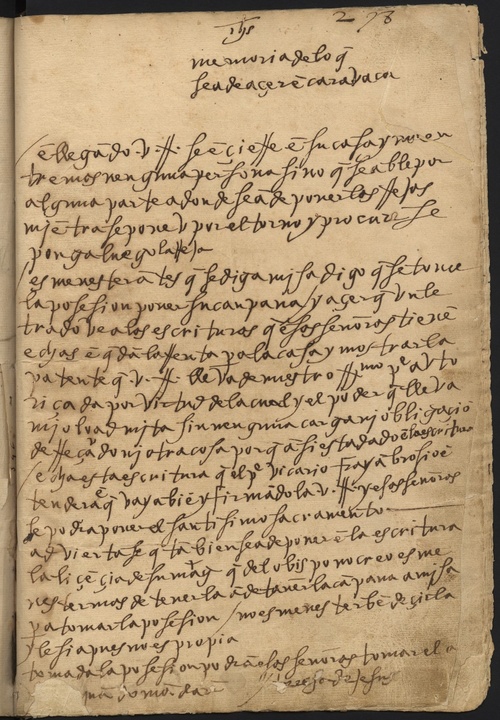 Jhs
273
memoria de lo q̄
se a de açer ē caravaca
ē llegādo v. R. se ēçieRe ē su casa y no en
tre mas nenguna persona sino q̄ se able por
alguna parte adonde se a de poner las Rejas
miētra se pone v por el torno y procurē se
ponga luego la Reja
es menester ātes q̄ se diga misa digo q̄ se tome
la posesion poner su canpana / y açer q̄ un le
trado vea las escrituras q̄ esos señores tienē
echas ē q̄ dā la Renta pa la casa y mostrar la
patente q̄ v. R. lleva de nuestro Rmo pe avto
riçada por virtud de la cual y el poder q̄ lleva
mio lo admita sin nenguna carga ni obligaçiō
de Reçado ni otra cosa porq̄ asi está dado ē la escritura
/ echa esta escritura q̄ el pe vicario fray anbrosio ē
tenderá q̄ vaya biē y firmado la v. R. y esos señores
se podra poner el santisimo sacramento
adviertase q̄ tābien se a de poner ē la escritura
la liçēçia de su mag q̄ del obispo no creo es me
nester mas de tenerla ā de tañer la cāpana a misa
pa tomar la posesion / no es menester bēdeçir la
yglesia pues no es propia
tomada la posesion podrā las señoras tomar el a
teresa de Jesus